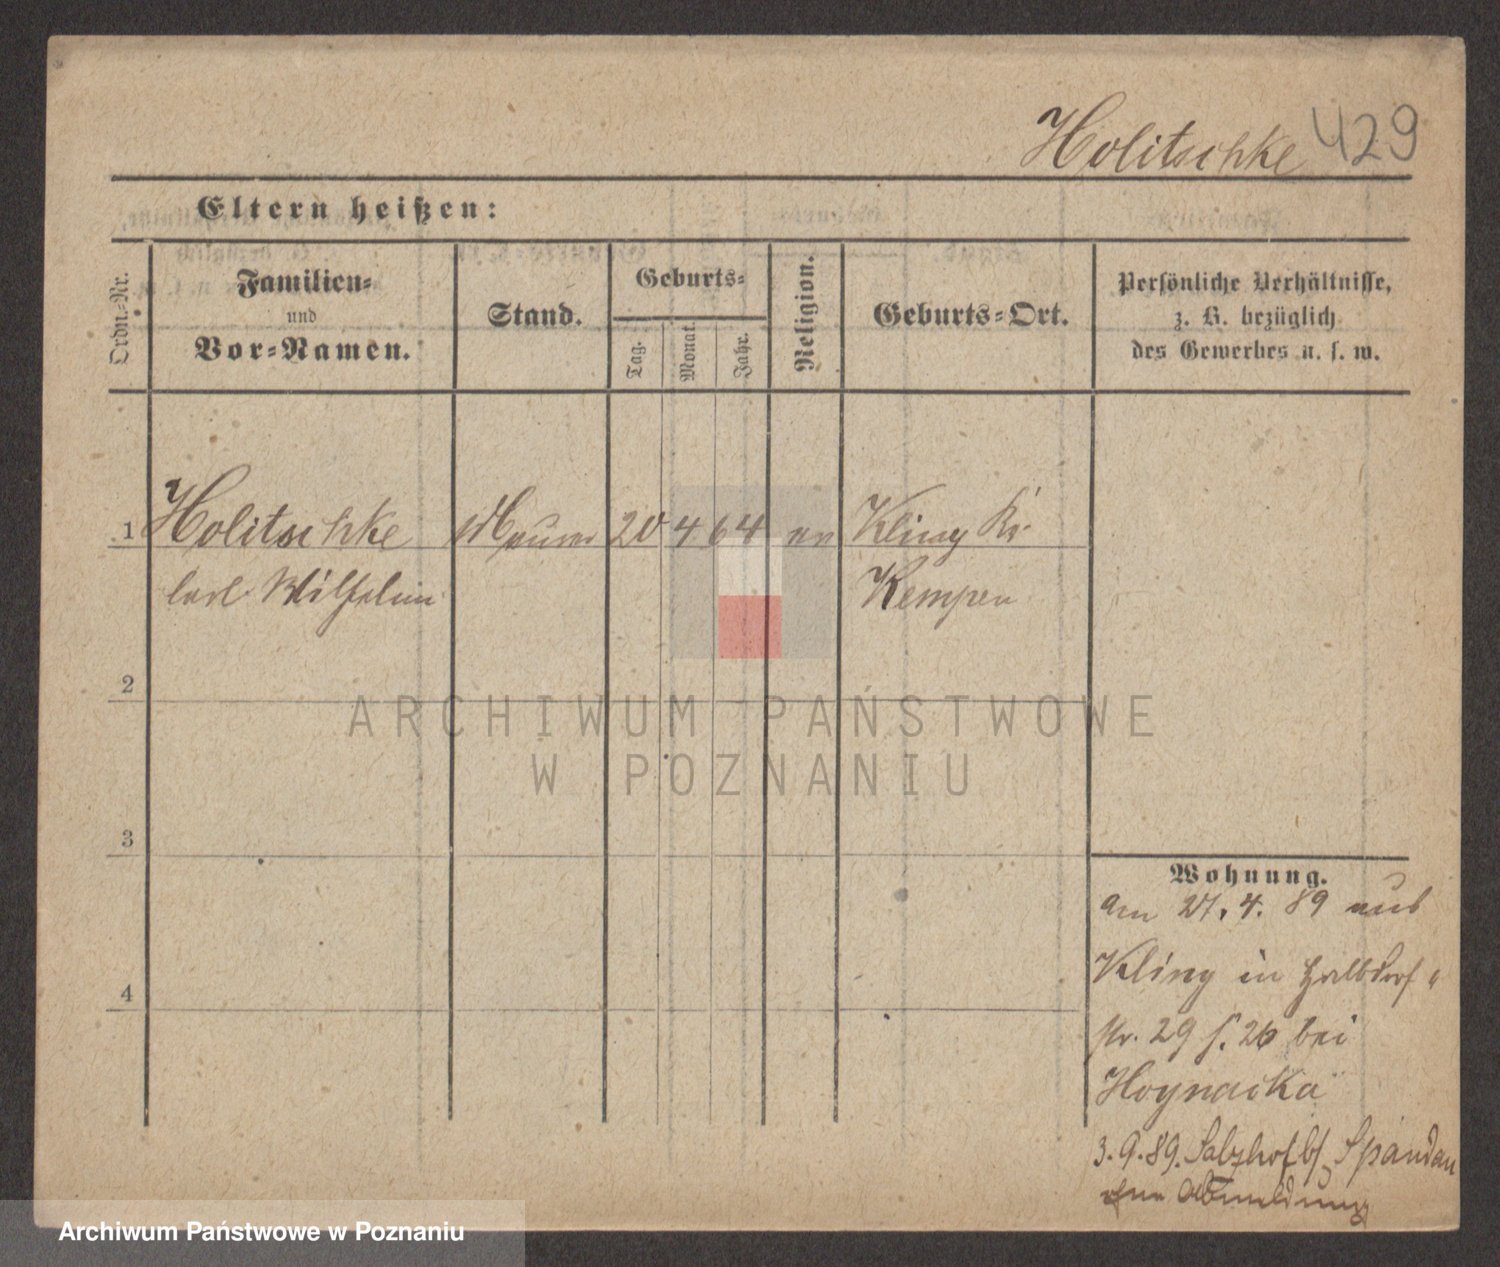 Holitschke 429
Eltern heißen:
Ordn.-Nr.
Familien-
und
Vor-Namen.
Stand.
Geburts-
Tag.
Monat.
Jahr.
Religion.
Geburts-Ort.
Persönliche Verhältnisse,
z. B. bezüglich
des Gewerbes u. s. w.
1 Holitschke Maurer 20 4 64 ev Kling Kr
Carl Wilhelm Kempen
2
3
4
Wohnung.
am 27. 4. 89 aus
Kling in Halbdorf-
str. 29 S. 26 bei
Hoynacka
3.9.89. Salzhof b/ Spandau
ohne Abmeldung
ARCHIWUM PAŃSTWOWE
W POZNANIU
Archiwum Państwowe w Poznaniu